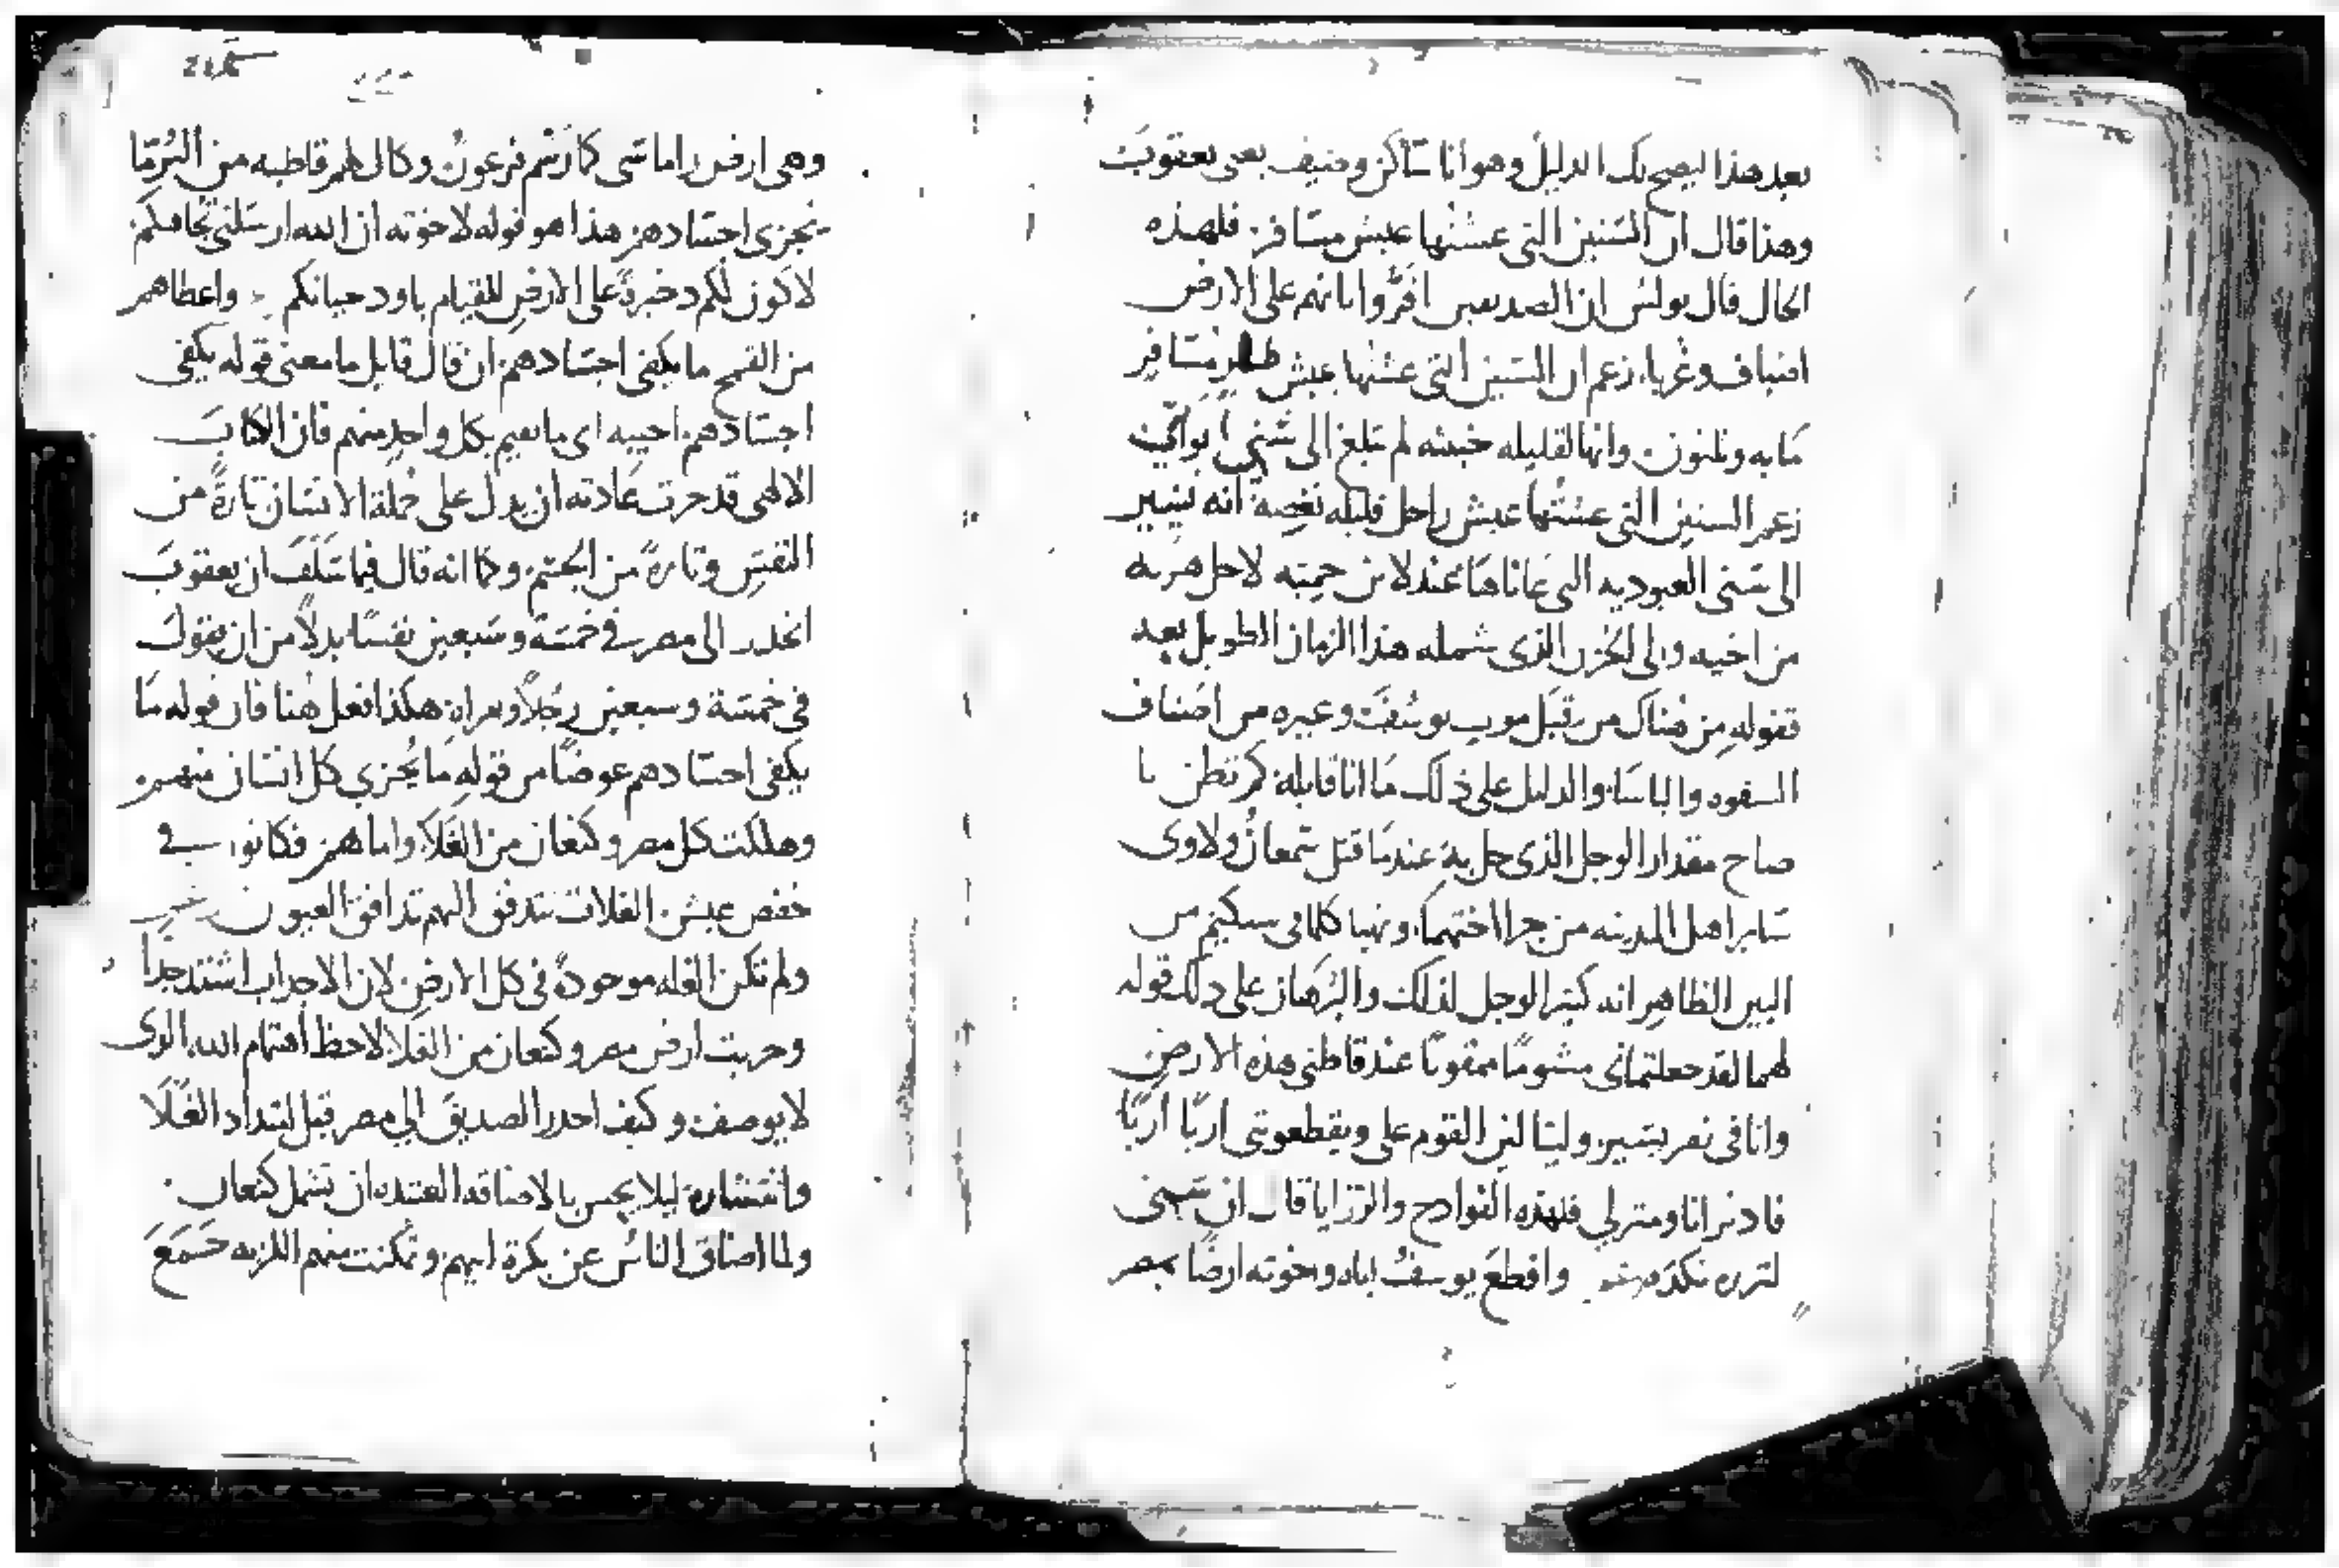 بعد هذا ليصح لك الدليل وهو انا ساكن وضيف يعنى يعقوب
وهذا قال ان السنين التى عشتها عيش مسافر. فلهذه
الحال قال بولس ان الصديقين اقروا بانهم على الارض
اضياف وغربا. زعم ان السنين التى عشتها عيش مسافر
مايه وثلثون. وانها لقليله خبيثه لم تبلغ الى سني ابواي
زعم السنين التى عشتها عيش راحل قليله نغصة انه يشير
الى سنى العبوديه التى عاناها عند لابن حميه لاجل هربه
من اخيه والى الحزن الذى شمله هذا الزمان الطويل بعد
قفوله من هناك من قبل موت يوسف وغيره من اصناف
الشقوه والباسا. والدليل على ذلك ما انا قايله. كم تظن يا
صاح مقدار الوجل الذى حل به عندما قتل شمعان ولاوى
ساير اهل المدينه من جرا اختهما. ونهبا كلما فى سكيم من
البين الظاهر انه كثير الوجل لذلك والبرهان على ذلك قوله
لهما لقد جعلتمانى مشوما ممقوتا عند قاطنى هذه الارض
وانا فى نفر يسير. وليتالبن القوم على ويقطعونى اربا اربا
فادثر انا ومنزلي فلهذه الفوادح والرزايا قال ان سنى
لنزره نكده واقطع يوسف اباه واخوته ارضا بمصر
وهى ارض راماسى كما رسم فرعون وكال لهم قاطبه من البر ما
يجزى اجسادهم. هذا هو قوله لاخوته ان الله ارسلنى تجاهكم
لاكون لكم دخيرة على الارض للقيام باود حياتكم واعطاهم
من القمح ما يكفى اجسادهم. ان قال قايل ما معنى قوله يكفى
اجسادهم. اجيبه اى ما يقيم بكل واحد منهم فان الكتاب
الالهى قد جرت عادته ان يدل على جملة الانسان تارة من
النفس وتارة من الجسم. وكما انه قال فيما سلف ان يعقوب
انحدر الى مصر فى خمسة وسبعين نفسا. بدلا من ان يقول
فى خمسة وسبعين رجلا وامراه. هكذا فعل هنا فان قوله ما
يكفى اجسادهم عوضا من قوله ما يجزي كل انسان منهم.
وهلكت كل مصر وكنعان من الغلا. واما هم فكانوا فى
خفض عيش. الغلات تتدفق اليهم تدافق العيون
ولم تكن الغله موجودة فى كل الارض. لان الاجداب اشتد جدا
وخربت ارض مصر وكنعان من الغلا. لاحظ اهتمام الله الذى
لا يوصف. وكيف احدر الصديق الى مصر قبل اشتداد الغلا
وانتشاره ليلا يحس بالاضاقه العتيده ان تشمل كنعان.
ولما اضاق الناس عن بكرة ابيهم وتمكنت منهم اللزبه جمع